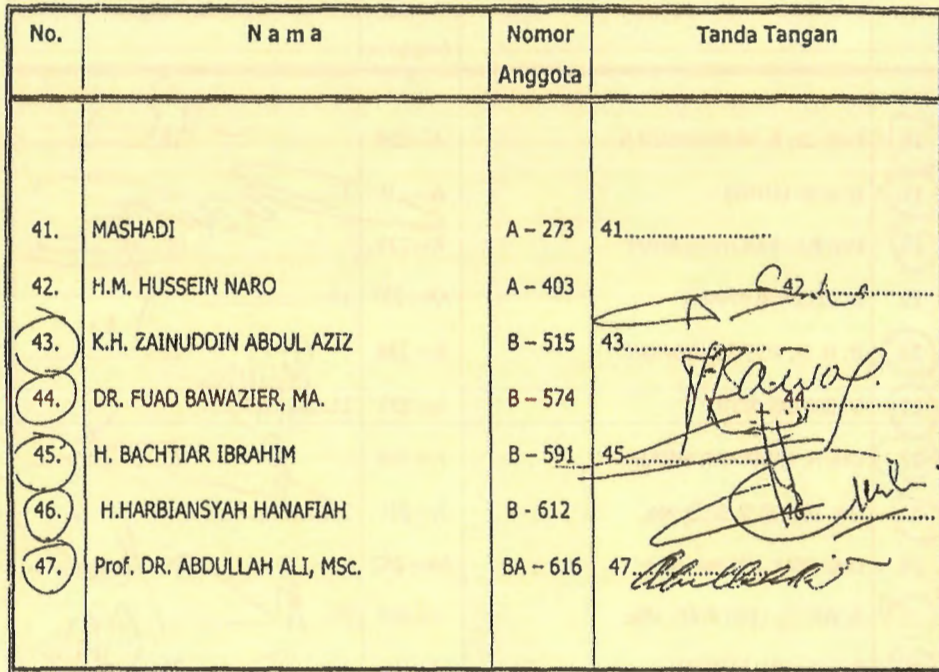 No. N a m a Nomor Anggota Tanda Tangan
41. MASHADI A – 273 41......................
42. H.M. HUSSEIN NARO A – 403 42......................
43. K.H. ZAINUDDIN ABDUL AZIZ B – 515 43......................
44. DR. FUAD BAWAZIER, MA. B – 574 44......................
45. H. BACHTIAR IBRAHIM B – 591 45......................
46. H.HARBIANSYAH HANAFIAH B - 612 46......................
47. Prof. DR. ABDULLAH ALI, MSc. BA – 616 47......................